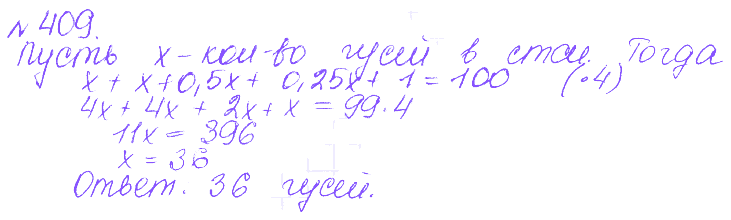 № 409.
Пусть х - кол-во гусей в стаи. Тогда
х + х + 0,5х + 0,25х + 1 = 100 (·4)
4х + 4х + 2х + х = 99·4
11х = 396
х = 36
Ответ. 36 гусей.